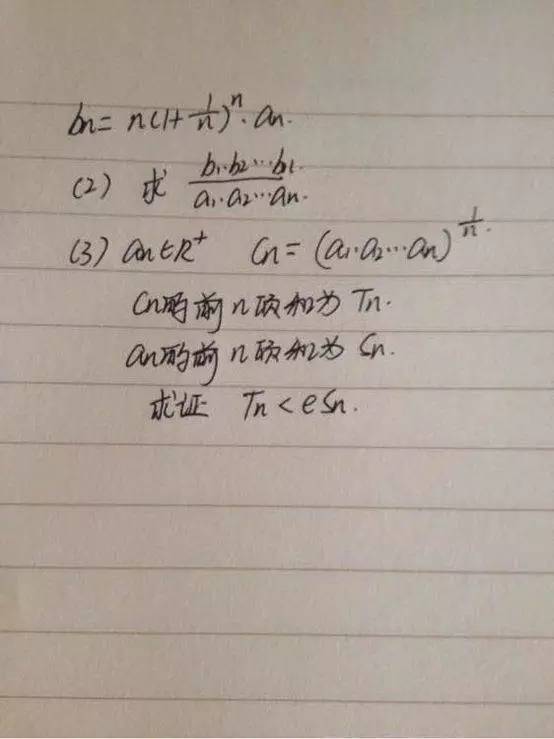 bn = n(1+1/n)^n · an.
(2) 求 b1·b2···bn / a1·a2···an.
(3) an∈R^+ Cn = (a1·a2···an)^(1/n).
Cn的前n项和为 Tn.
an的前n项和为 Sn.
求证 Tn < eSn.